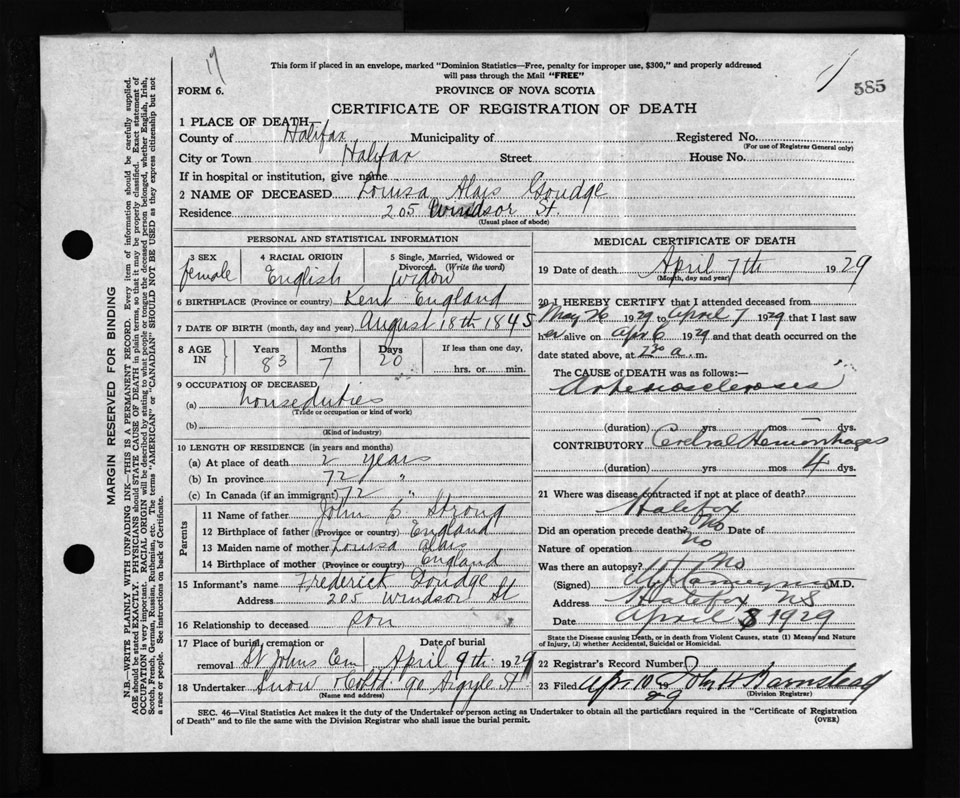 17
This form if placed in an envelope, marked "Dominion Statistics—Free, penalty for improper use, $300," and properly addressed
will pass through the Mail "FREE"
FORM 6.
PROVINCE OF NOVA SCOTIA
585
CERTIFICATE OF REGISTRATION OF DEATH
1 PLACE OF DEATH
County of Halifax Municipality of Registered No.
(For use of Registrar General only)
City or Town Halifax Street House No.
If in hospital or institution, give name
2 NAME OF DECEASED Louisa Alais Goudge
Residence 205 Windsor St.
(Usual place of abode)
PERSONAL AND STATISTICAL INFORMATION
3 SEX 4 RACIAL ORIGIN 5 Single, Married, Widowed or
Divorced. (Write the word)
female English widow
6 BIRTHPLACE (Province or country) Kent England
7 DATE OF BIRTH (month, day and year) August 18th 1845
8 AGE IN Years Months Days If less than one day,
83 7 20 hrs. or min.
9 OCCUPATION OF DECEASED
(a) houseduties
(Trade or occupation or kind of work)
(b)
(Kind of industry)
10 LENGTH OF RESIDENCE (in years and months)
(a) At place of death 2 years
(b) In province 72 "
(c) In Canada (if an immigrant) 72 "
Parents
11 Name of father John Strong
12 Birthplace of father (Province or country) England
13 Maiden name of mother Louisa Alais
14 Birthplace of mother (Province or country) England
15 Informant's name Frederick Goudge
Address 205 Windsor St
16 Relationship to deceased son
17 Place of burial, cremation or Date of burial
removal St Johns Cem April 9th 1929
18 Undertaker Snow & Co Ltd 90 Argyle St
(Name and address)
MEDICAL CERTIFICATE OF DEATH
19 Date of death April 7th 1929
(Month, day and year)
20 I HEREBY CERTIFY that I attended deceased from
May 26 1929 to April 7 1929 that I last saw
her alive on Apr 6 1929 and that death occurred on the
date stated above, at a.m.
The CAUSE of DEATH was as follows:
Arteriosclerosis
(duration) yrs mos dys.
CONTRIBUTORY Cerebral Hemorrhages
(duration) yrs mos 4 dys.
21 Where was disease contracted if not at place of death?
Halifax
Did an operation precede death? No Date of
Nature of operation no
Was there an autopsy? No
(Signed) M.D.
Address Halifax NS
Date April 8 1929
State the Disease causing Death, or in death from Violent Causes, state (1) Means and Nature
of Injury, (2) whether Accidental, Suicidal or Homicidal.
22 Registrar's Record Number
23 Filed Apr 10 1929 John H Barnstead
(Division Registrar)
SEC. 46—Vital Statistics Act makes it the duty of the Undertaker or person acting as Undertaker to obtain all the particulars required in the "Certificate of Registration
of Death" and to file the same with the Division Registrar who shall issue the burial permit.
(OVER)
MARGIN RESERVED FOR BINDING
N.B.—WRITE PLAINLY WITH UNFADING INK—THIS IS A PERMANENT RECORD. Every item of information should be carefully supplied.
AGE should be stated EXACTLY. PHYSICIANS should STATE CAUSE OF DEATH in plain terms, so that it may be properly classified. Exact statement of
OCCUPATION is very important. RACIAL ORIGIN will be described by stating to what people or tongue the deceased person belonged, whether English, Irish,
Scotch, French, German, Russian, Ruthenian, etc. The terms "AMERICAN" or "CANADIAN" SHOULD NOT BE USED as they express citizenship but not
a race or people. See instructions on back of Certificate.